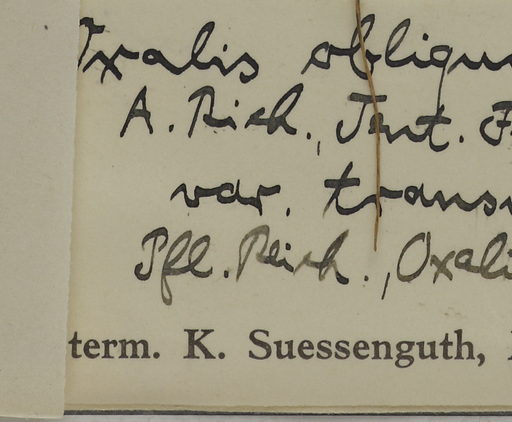 Oxalis obliqu
A. Rich., Tent. F
var. trans
Pfl. Reich., Oxali
term. K. Suessenguth,